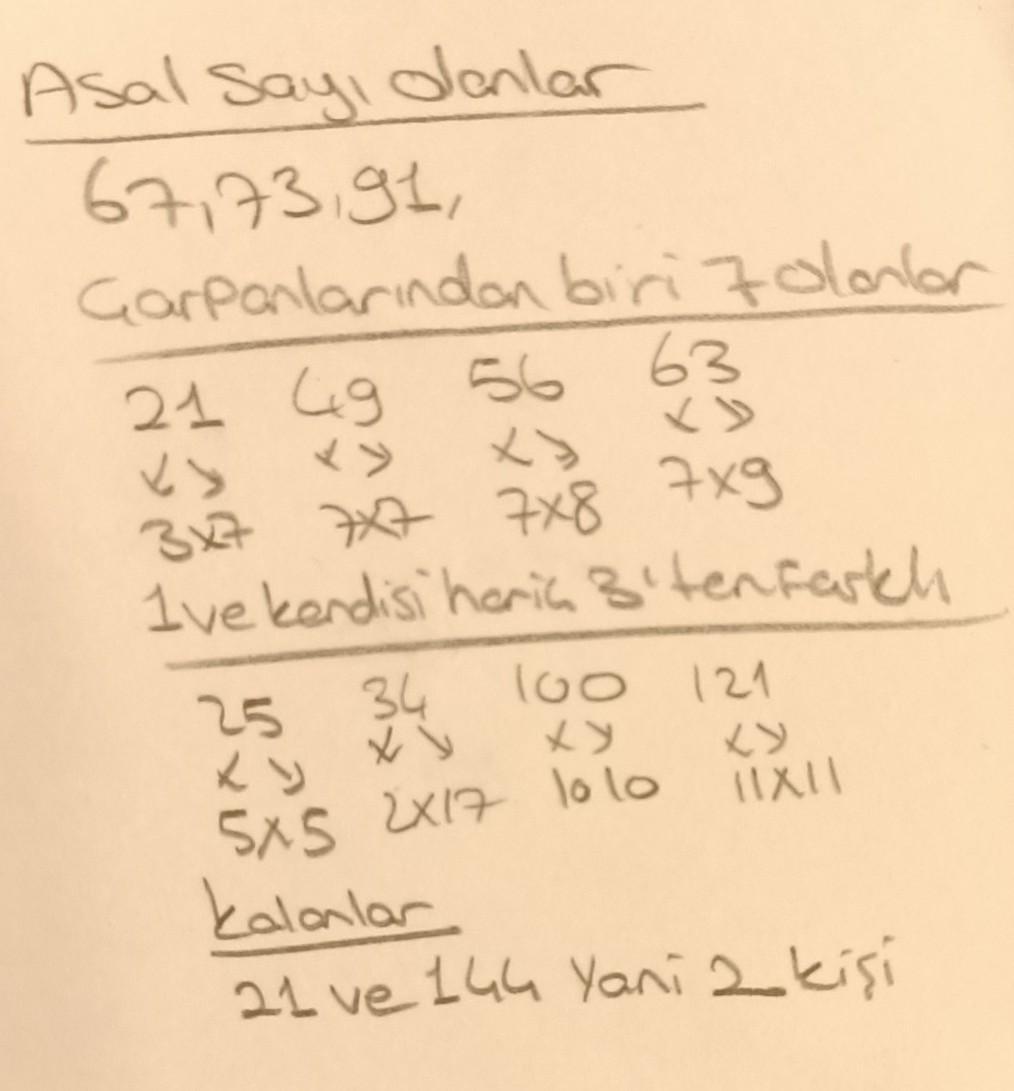 Asal Sayı olanlar
67,73,91,
Çarpanlarından biri 7 olanlar
21 49 56 63
3x7 7x7 7x8 7x9
1 ve kendisi hariç 3'ten farklı
25 34 100 121
5x5 2x17 10 10 11x11
kalanlar
21 ve 144 yani 2 kişi